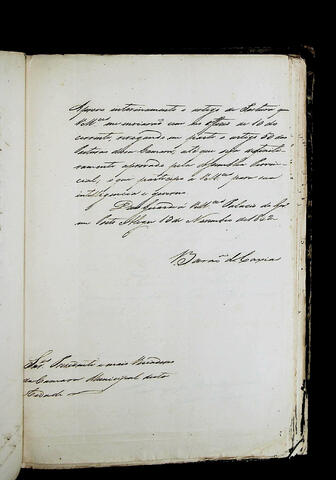 Approvo interinamente o artigo de Postura que
V.Mces me enviarão com seo officio de 10 do
corrente, revogando em parte o artigo 50 das
Posturas dessa Camara, até que seja definitiva-
mente approvado pela Assembléa Provin-
cial; o que participo a V.Mces para sua
intelligencia e governo.
Deos Guarde a V.Mces Palacio do Go-
em Porto Alegre 18 de Novembro de 1842
Barão de Caxias
Snrs. Presidente e mais Vereadores
da Camara Municipal desta
Cidade